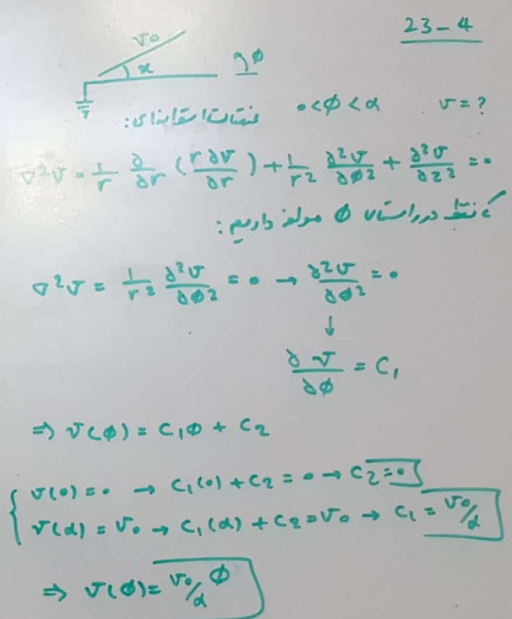 23-4
V₀
α
φ
مختصات استوانه‌ای: 0<φ<α V=?
∇²V = 1/r ∂/∂r (r∂V/∂r) + 1/r² ∂²V/∂φ² + ∂²V/∂z² = 0
فقط در راستای φ مولفه داریم:
∇²V = 1/r² ∂²V/∂φ² = 0 → ∂²V/∂φ² = 0
↓
∂V/∂φ = C₁
⇒ V(φ) = C₁φ + C₂
V(0)=0 → C₁(0)+C₂=0 → C₂=0
V(α)=V₀ → C₁(α)+C₂=V₀ → C₁=V₀/α
⇒ V(φ)=V₀/α φ